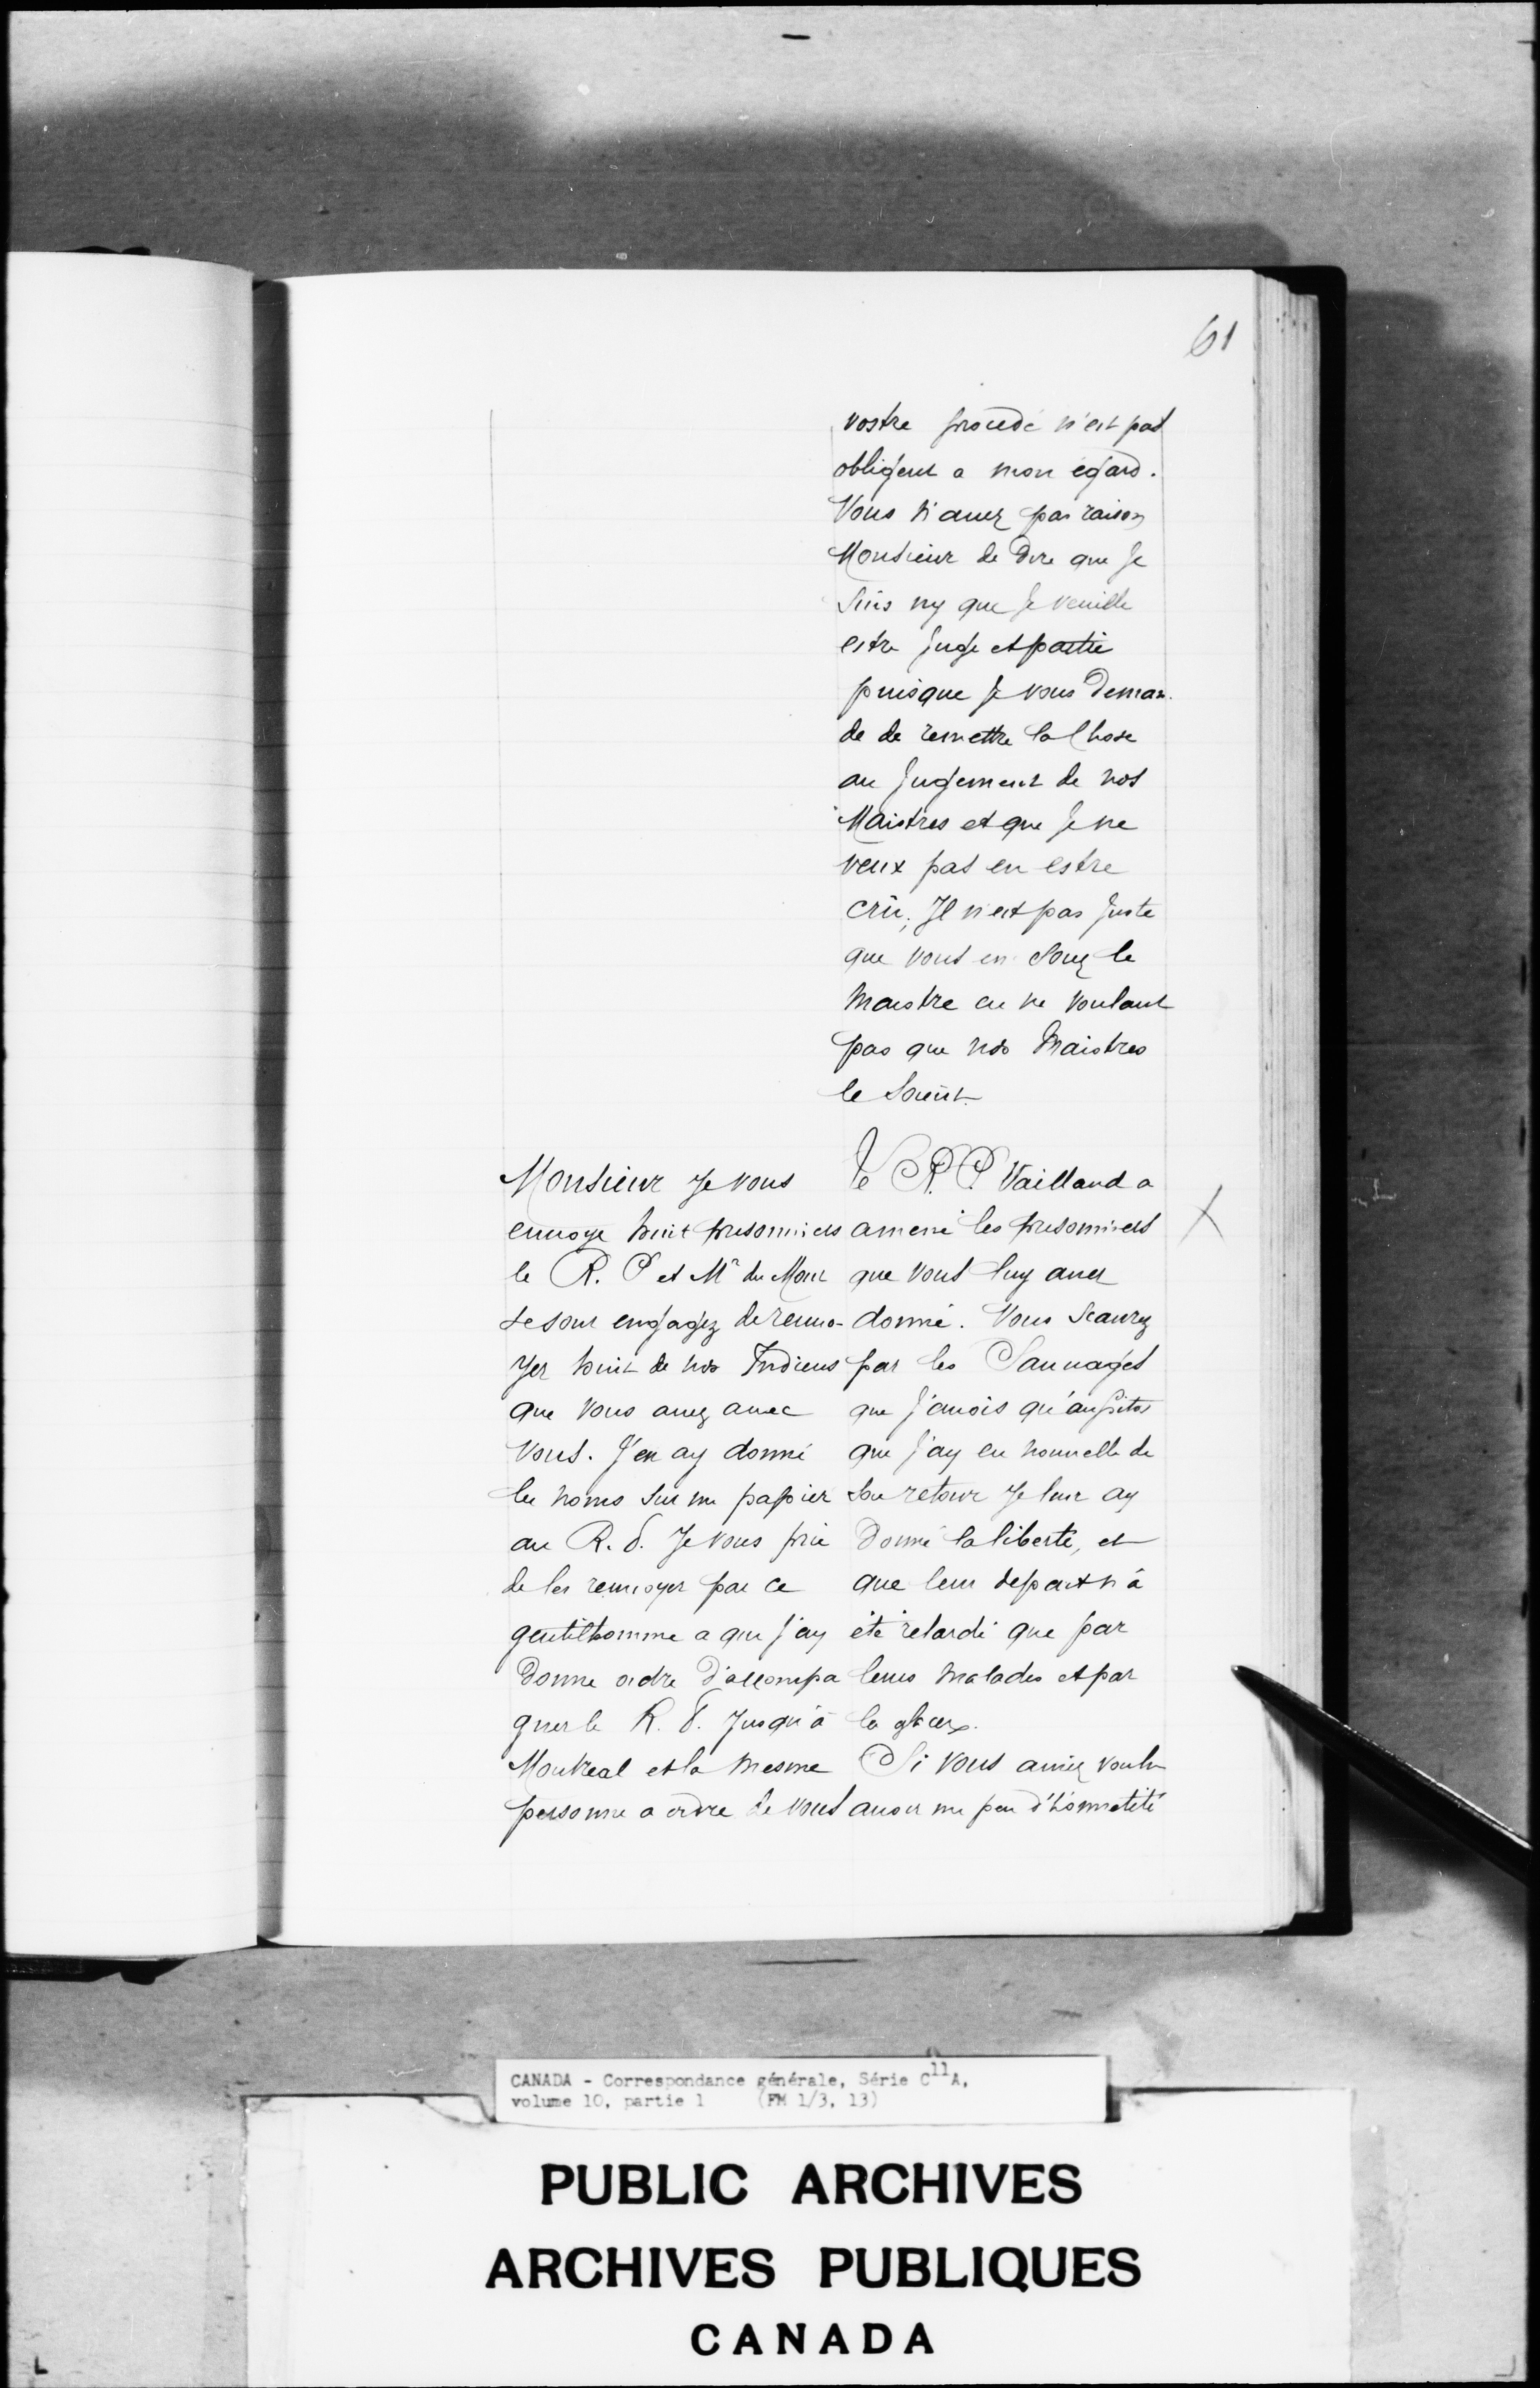 61
vostre procedé n'est pas
obligent a mon egard.
Vous n'auez pas raison
Monsieur de dire que Je
suis ny que Je veuille
estre Juge et partie
puisque Je vous deman-
de de remettre la Chose
au Jugement de nos
Maistres et que Je ne
veux pas en estre
crû; Il n'est pas Juste
que vous en soiez le
maistre en ne voulant
pas que nos Maistres
le soient.
Monsieur Je vous
enuoye huit prisonniers
le R. P et Mr du Mont
se sont engagez de renuo-
yer huit de nos Indiens
que vous auez auec
vous. J'en ay donné
les noms sur un papier
au R. P. Je vous prie
de les renuoyer par ce
gentilhomme a qui J'ay
donne ordre d'accompa
gner le R. P. Jusqu'à
Montreal et la mesme
personne a ordre de vous
Le R. P. Vailland a
amené les prisonniers
que vous luy auez
donné. Vous scaurez
par les Sauuages
que J'auois qu'aussitos
que J'ay eu nouuelle de
son retour Je leur ay
donné la liberté, et
que leur depart n'a
été retardé que par
leurs malades et par
les glaces.
Si vous auiez voulu
auoir un peu d'honnetété
CANADA - Correspondance générale, Série C11A,
volume 10, partie 1 (FM 1/3, 13)
PUBLIC ARCHIVES
ARCHIVES PUBLIQUES
CANADA